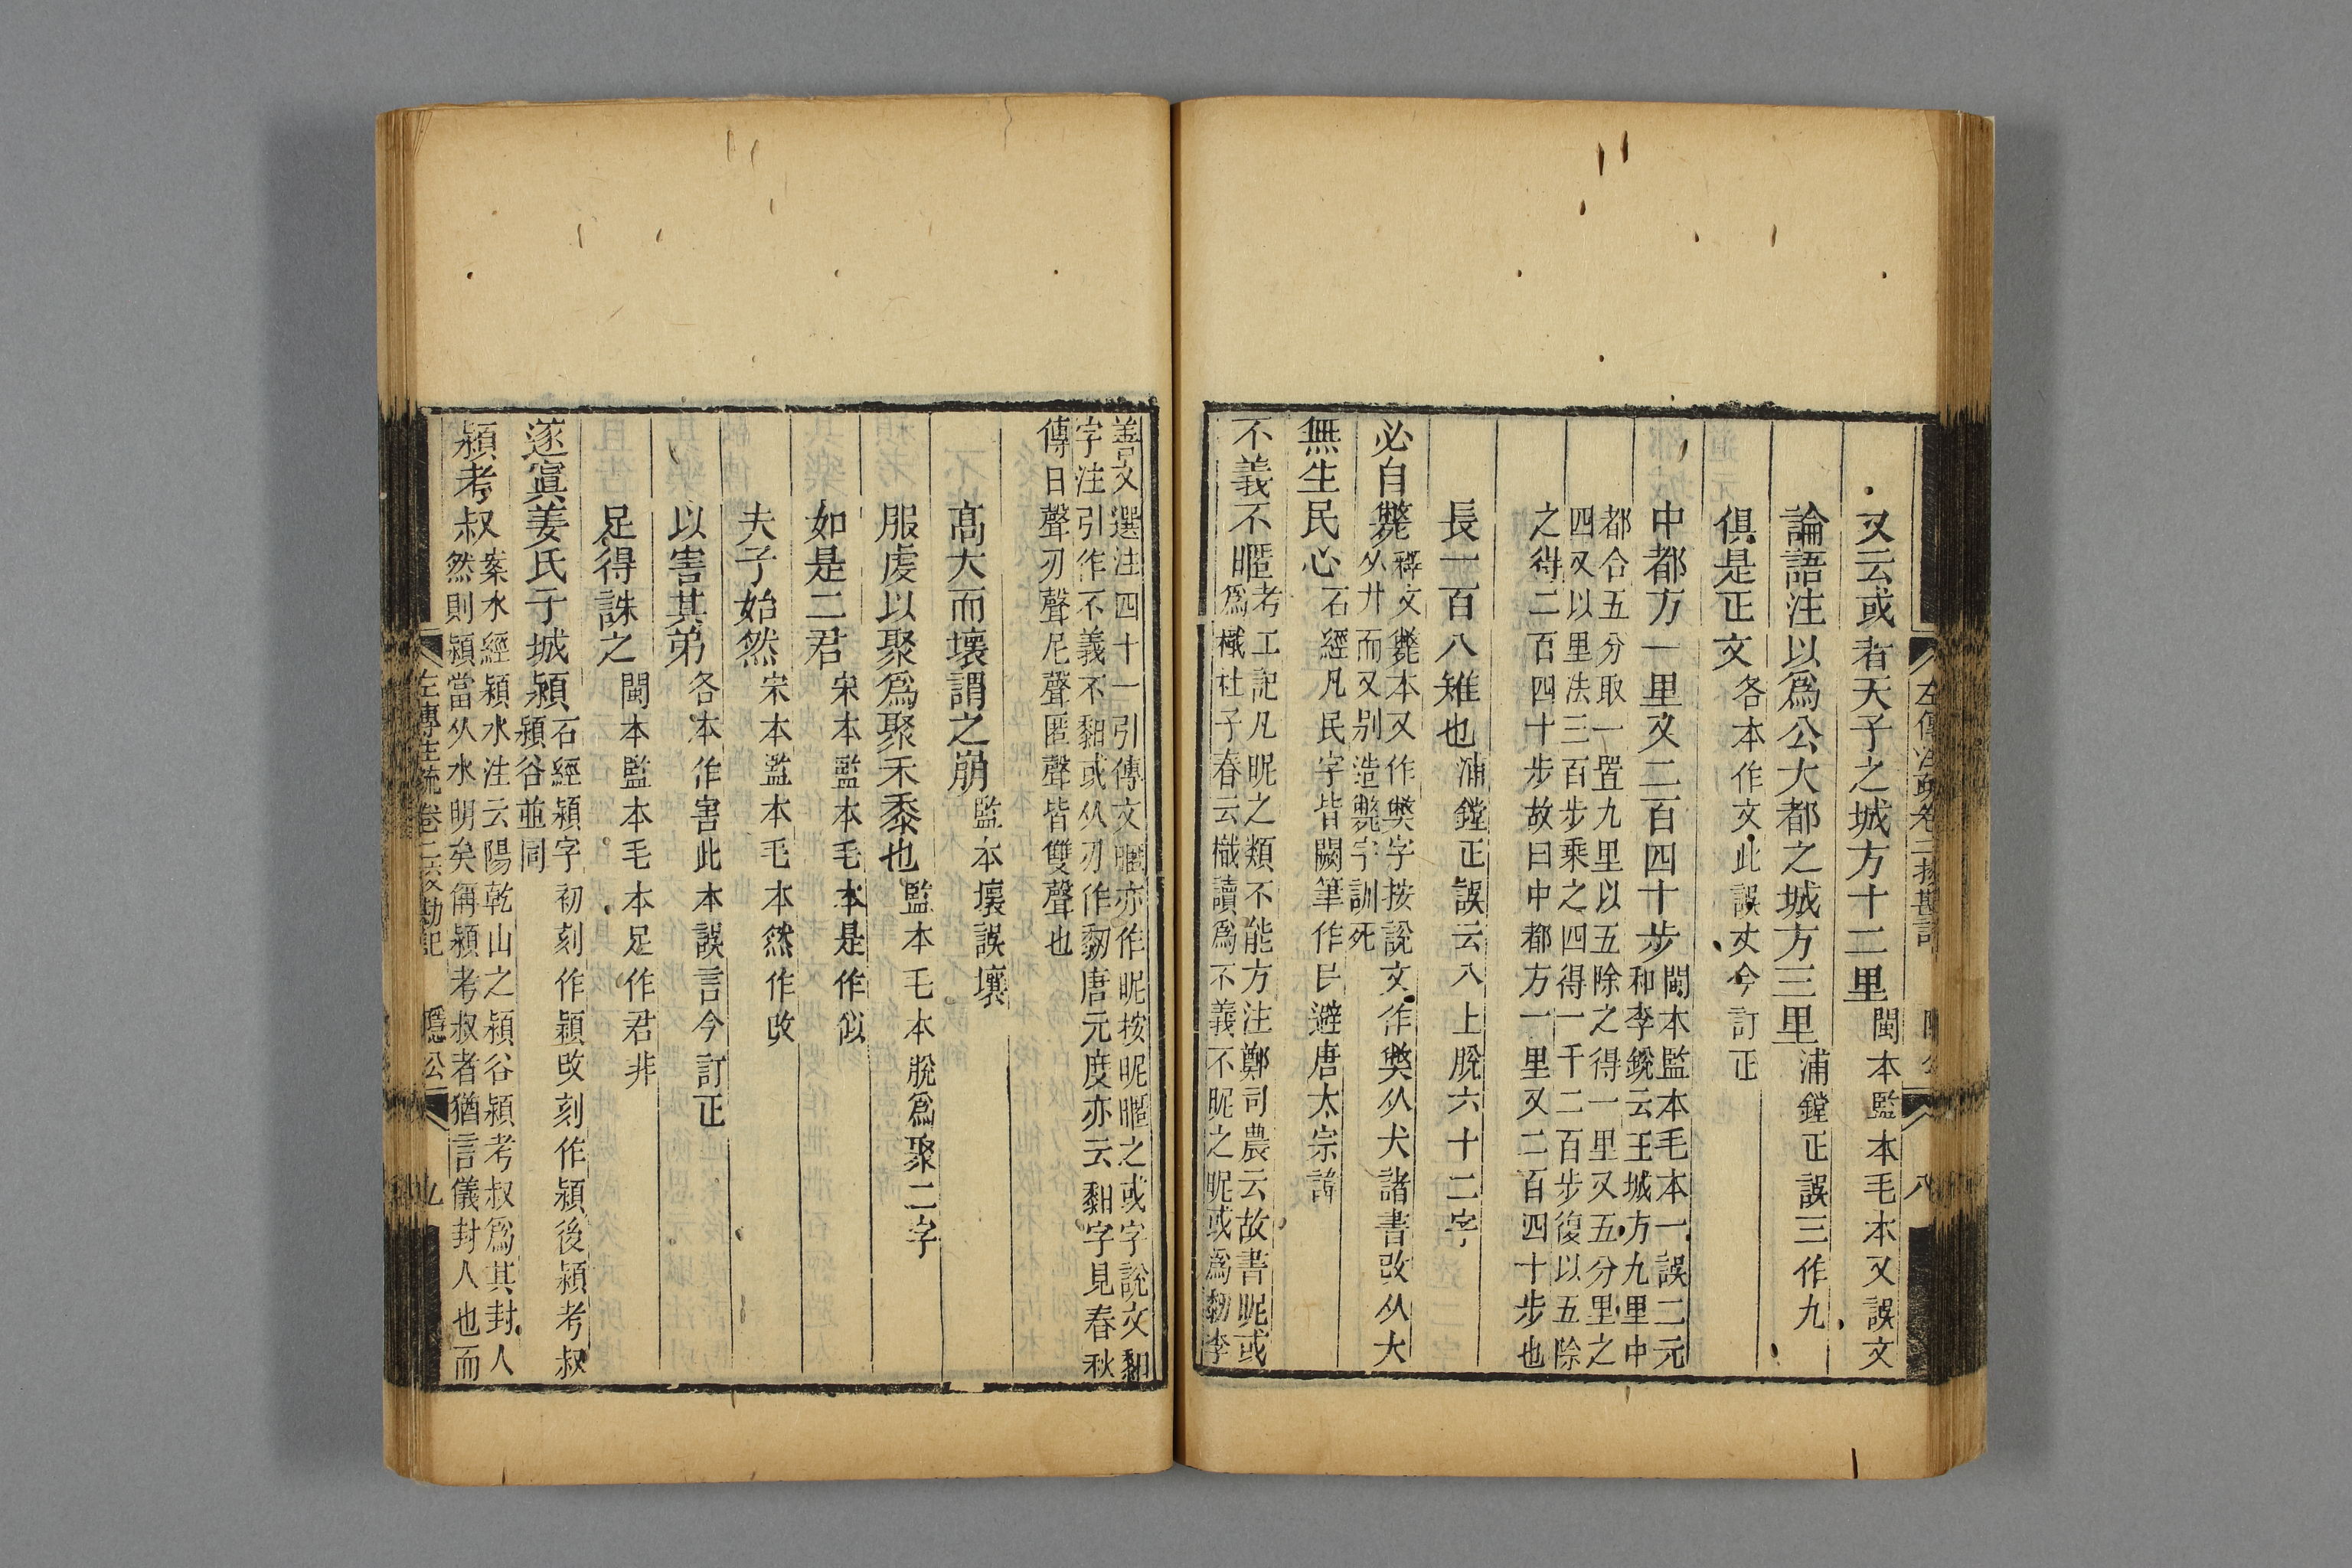 左傳注疏卷二挍勘記　隱公　八
又云或者天子之城方十二里閩本監本毛本又誤文
論語注以爲公大都之城方三里浦鏜正誤三作九
俱是正文各本作文此誤丈今訂正
中都方一里又二百四十步閩本監本毛本一誤二元
和李銳云王城方九里中
都合五分取一置九里以五除之得一里又五分里之
四又以里法三百步乘之四得一千二百步復以五除
之得二百四十步故曰中都方一里又二百四十步也
長一百八雉也浦鏜正誤云八上脫六十二字
必自斃釋文斃本又作獘字按說文作獘从犬諸書改从大
从廾而又别造斃字訓死
無生民心石經凡民字皆闕筆作㞪避唐太宗諱
不義不暱考工記凡昵之類不能方注鄭司農云故書昵或
爲樴杜子春云樴讀爲不義不昵之昵或爲䵑李
善文選注四十一引傳文暱亦作昵按昵暱之或字說文䵒
字注引作不義不䵒或从刃作䵑唐元度亦云䵒字見春秋
傳日聲刃聲尼聲匿聲皆雙聲也
高大而壞謂之崩監本壞誤壤
服虔以聚爲聚禾黍也監本毛本脫爲聚二字
如是二君宋本監本毛本是作似
夫子始然宋本監本毛本然作改
以害其弟各本作害此本誤言今訂正
足得誅之閩本監本毛本足作君非
遂寘姜氏于城潁石經潁字初刻作穎改刻作潁後潁考叔
潁谷並同
潁考叔案水經潁水注云陽乾山之潁谷潁考叔爲其封人
然則潁當从水明矣偁潁考叔者猶言儀封人也而
左傳注疏卷二挍勘記　隱公　九